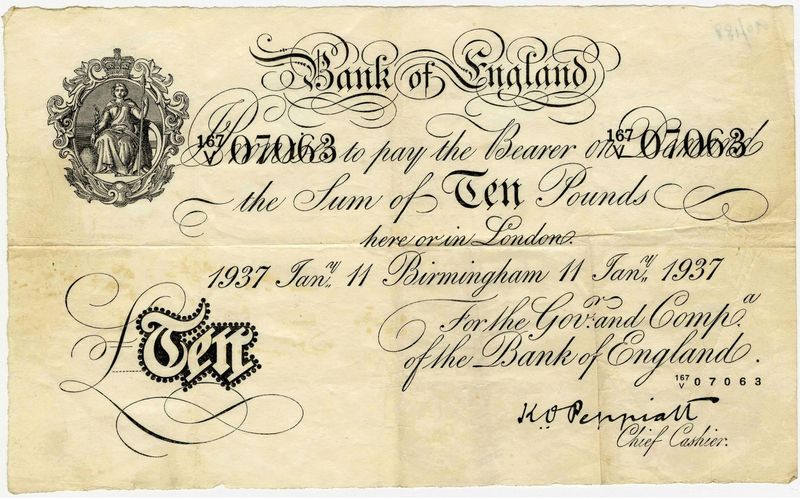 Bank of England
167/V 07063 167/V 07063
Promise to pay the Bearer on Demand
the Sum of Ten Pounds
here or in London.
1937 Janʸ 11 Birmingham 11 Janʸ 1937
£Ten
For the Govʳ and Compᵃ
of the Bank of England.
167/V 07063
K O Peppiatt
Chief Cashier.